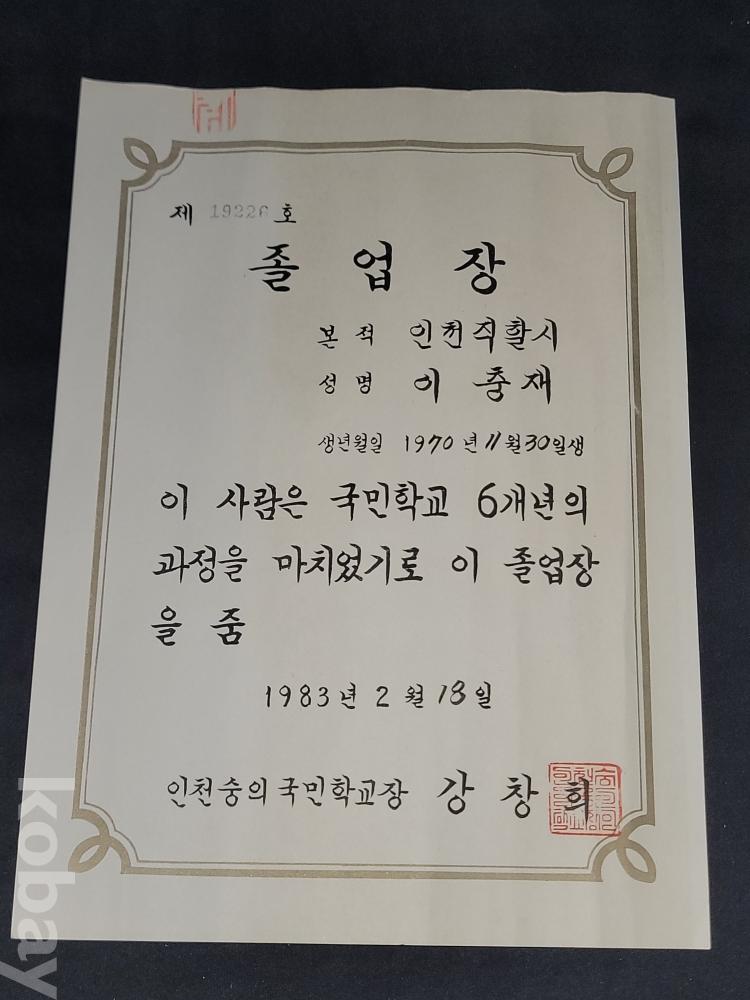 제 19226 호
졸업장
본적 인천직할시
성명 이충재
생년월일 1970년 11월 30일생
이 사람은 국민학교 6개년의
과정을 마치었기로 이 졸업장
을 줌
1983년 2월 18일
인천숭의국민학교장 강창희
kobay